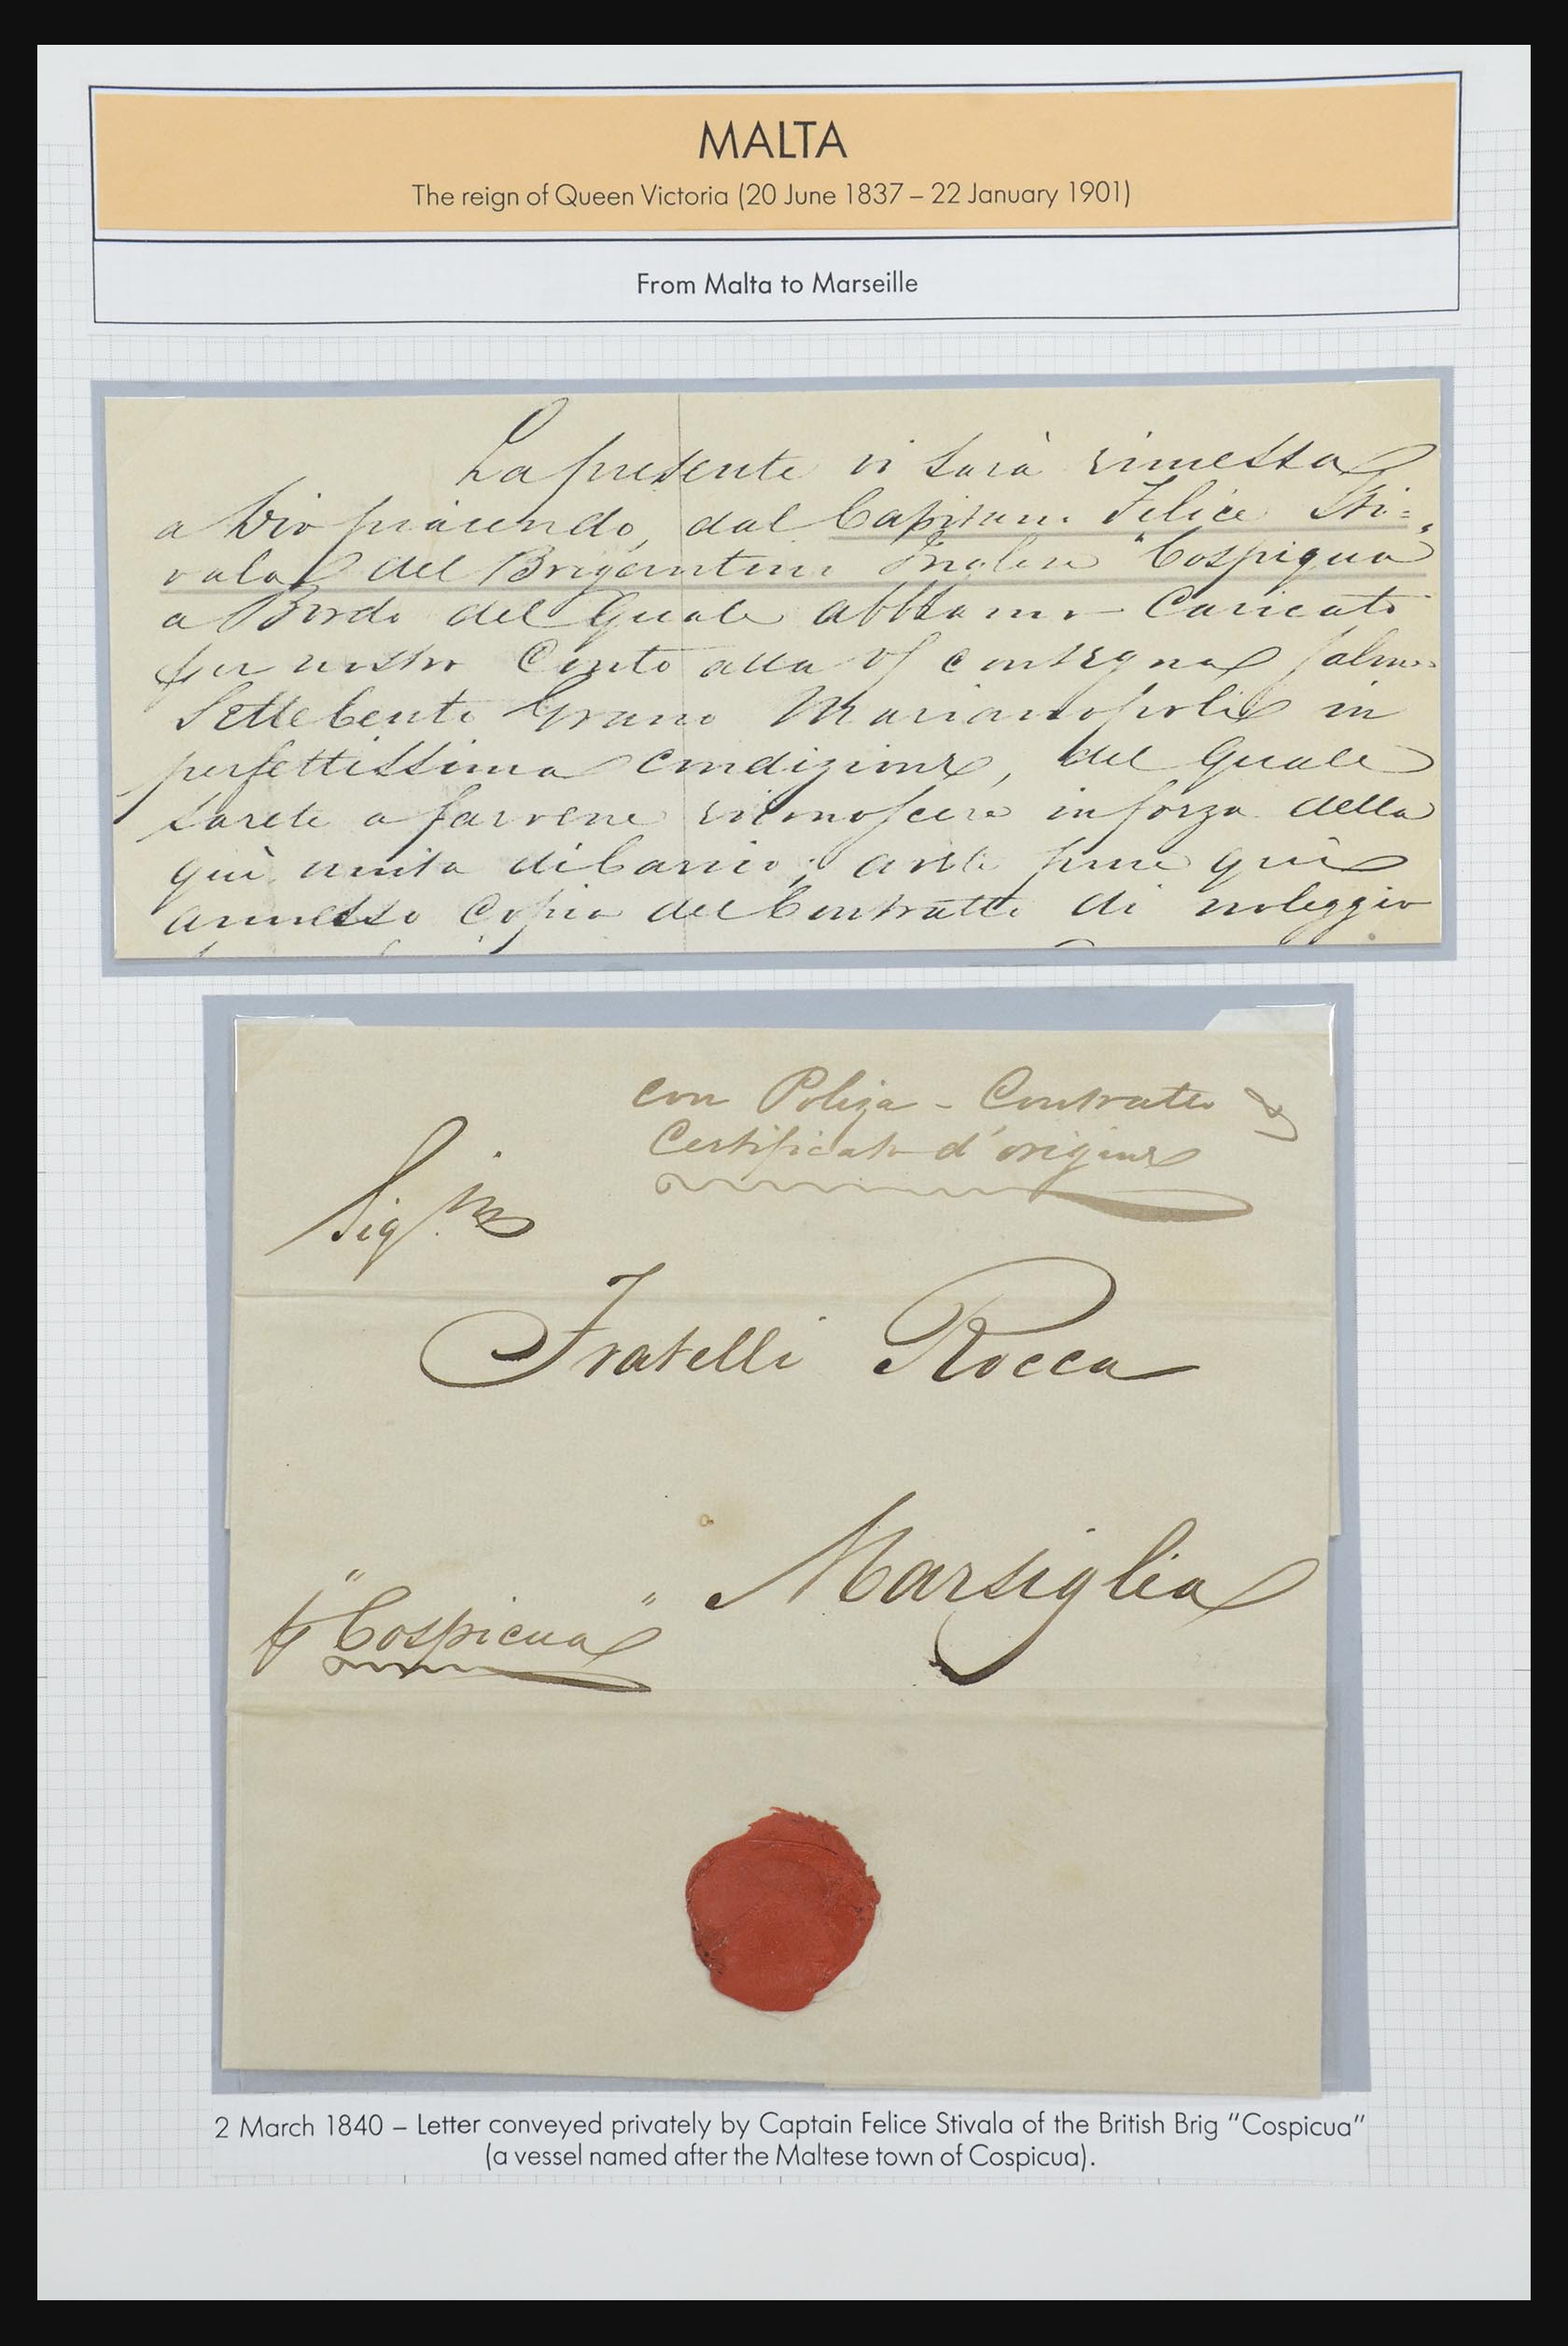 MALTA
The reign of Queen Victoria (20 June 1837 – 22 January 1901)
From Malta to Marseille
La presente vi sarà rimessa
a Dio piacendo, dal Capitano Felice Sti=
vala del Brigantino Inglese "Cospiqua"
a Bordo del Quale abbiamo Caricato
per nostro Conto alla V/ consegna Salme
SetteCento Grano Marianopoli in
perfettissima Condizione, del Quale
sarete a farvene riconoscere in forza della
quì unita di Carico; avete pure quì
annesso Copia del Contratto di noleggio
con Poliza - Contratto &
Certificato d'origine
Sig.ri
Fratelli Rocca
Marsiglia
p "Cospicua"
2 March 1840 – Letter conveyed privately by Captain Felice Stivala of the British Brig "Cospicua"
(a vessel named after the Maltese town of Cospicua).